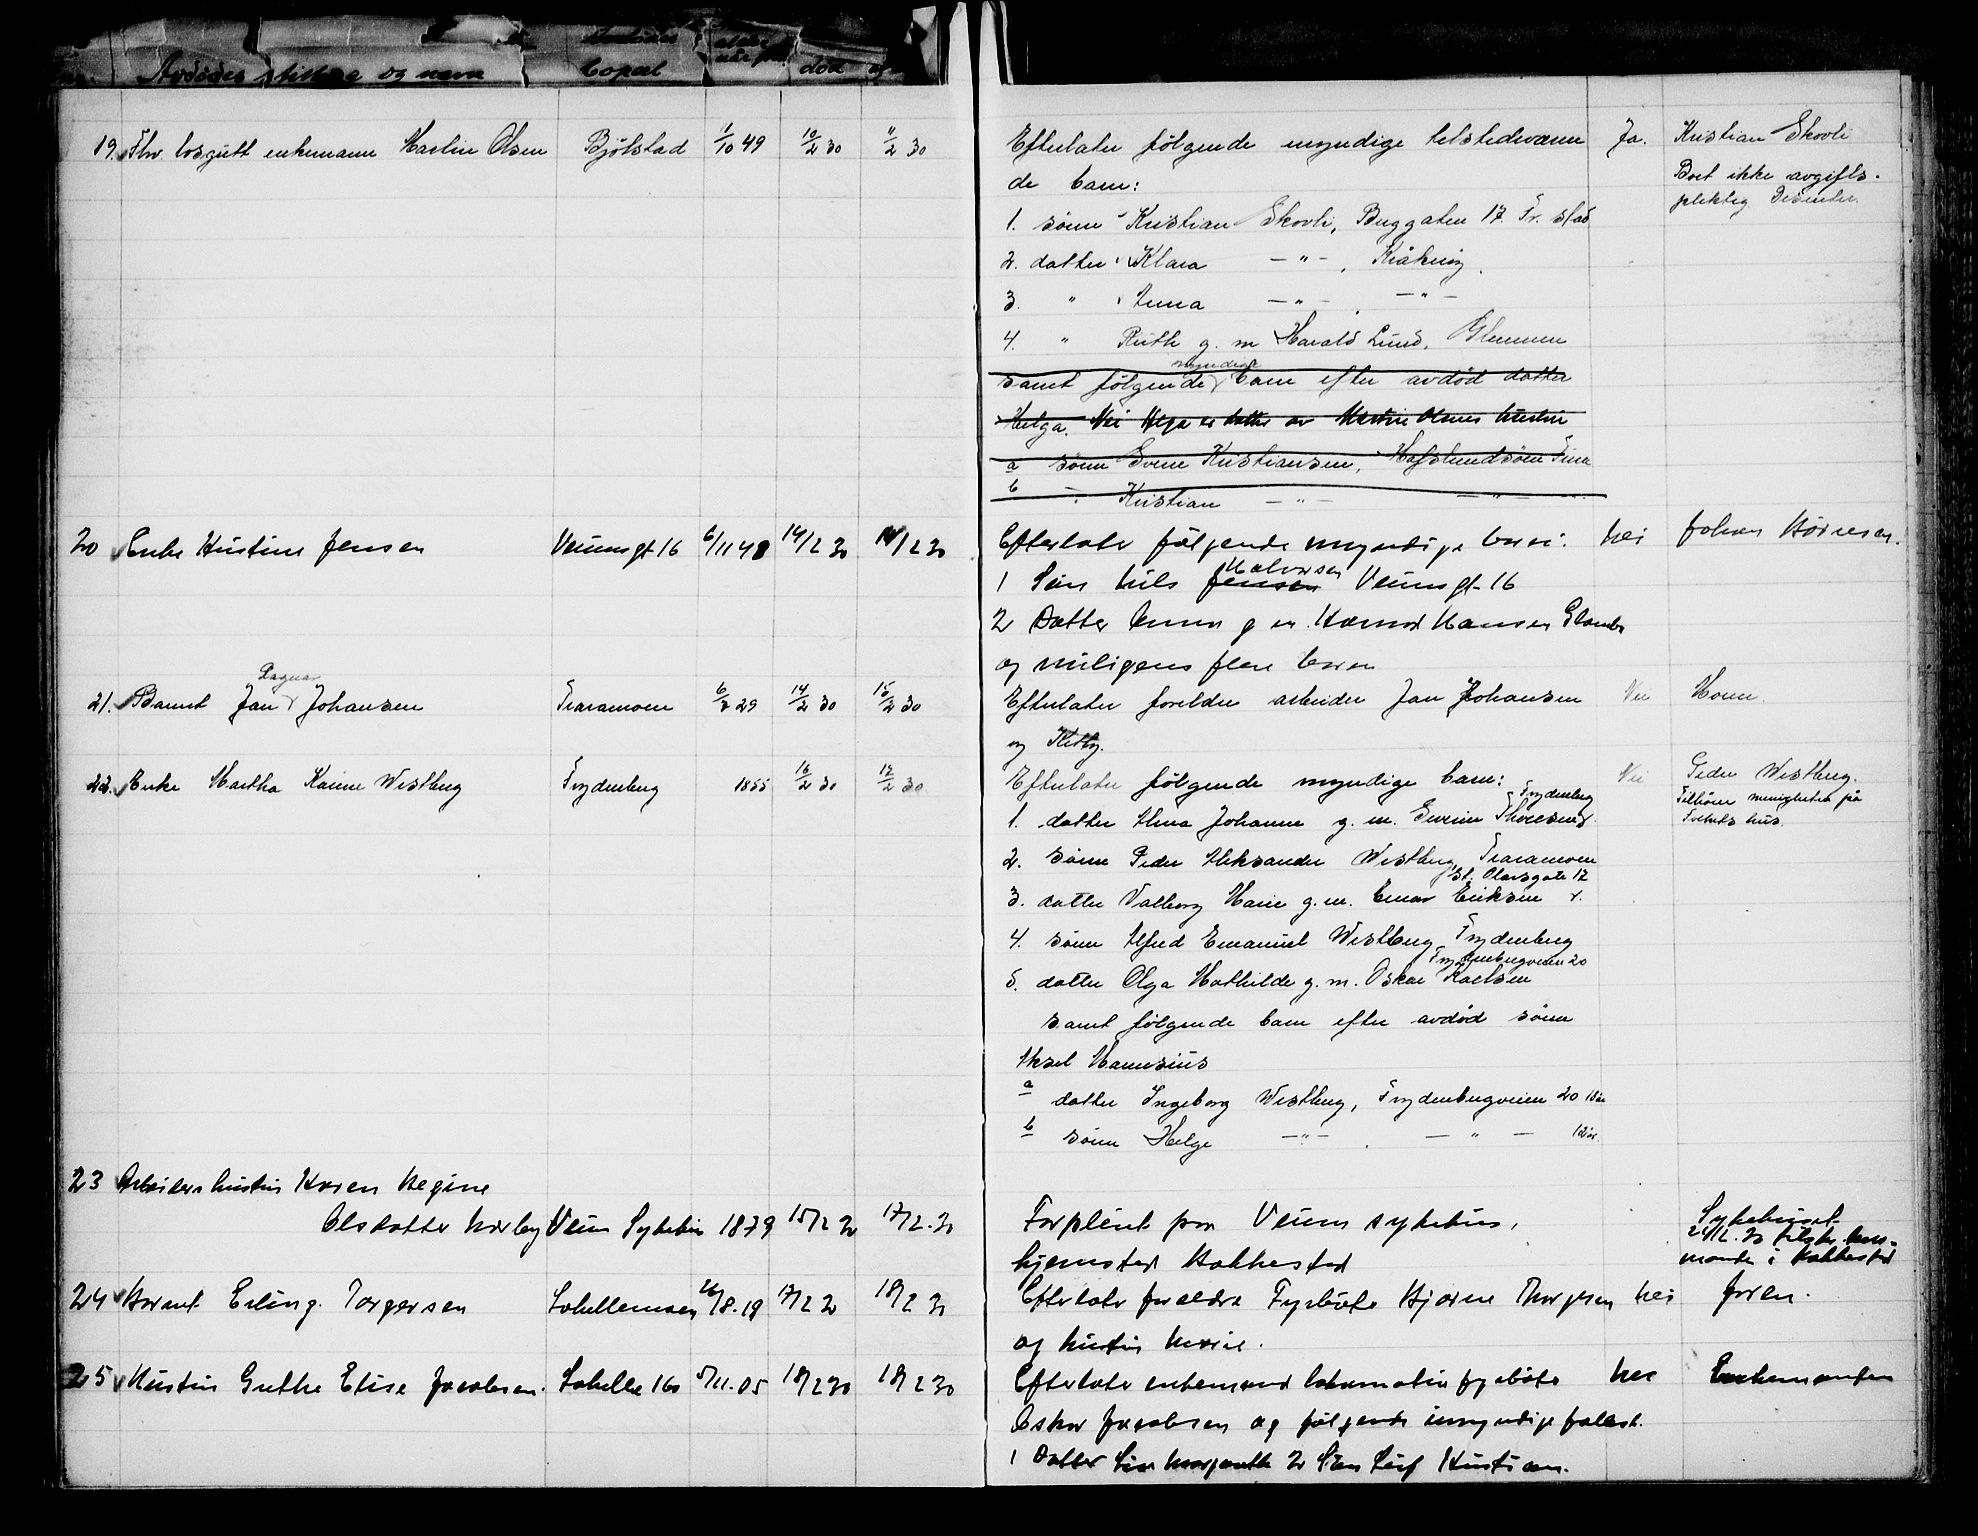 Avdødes stilling og navn bopæl død
19. Fhv. losgutt enkemann Martin Olsen Bjølstad 1/10 49 10/2 30 11/2 30
Efterlater følgende myndige tilstedeværen
de barn:
1. sønn Kristian Skovli, Buggaten 17. Fr.stad
2. datter Klara —"— , Kråkerøy.
3. " Anna —"— , —"—
4. " Ruth g. m Harald Lund, Glemmen
samt følgende myndige barn efter avdød datter
Helga. Nei Helga er datter av Martin Olsens hustru
a sønn Svenn Kristiansen, Hafslundsøen Tune
b " Kristian —"— —"—
Ja. Kristian Skovli
Boet ikke avgifts-
pliktig Desember
20 Enke Kristine Jensen Veumsgt 16 6/11 48 14/2 30 14/2 30
Efterlater følgende myndige barn:
1 Sønn Nils Jensen Halvorsen Veumsgt 16
2 Datter Anna g m. Harald Hansen Glombo
og muligens flere barn
nei Johan Hørnesen.
21. Barnet Jan Ragnar Johansen Traramoen 6/2 29 14/2 30 15/2 30
Efterlater foreldre arbeider Jan Johansen
og Kitty.
Nei Moren.
22. Enke Martha Karine Westberg Trydenberg 1855 16/2 30 17/2 30
Efterlater følgende myndige barn:
1. datter Alma Johanne g. m. Thoresen Frydenberg
2. sønn Peder Aleksander Westberg, Traramoen
3. datter Valborg Marie g. m. Einar Eriksen St. Olavsgate 12
4. sønn Alfred Emanuel Westberg Frydenberg
5. datter Olga Mathilde g. m. Oskar Karlsen Frydenbergveien 20
samt følgende barn efter avdød sønn
Aksel Hannsius
a datter Ingeborg Westberg, Frydenbergveien 20 18 år
b sønn Helge —"— , —"— 12 år.
Nei Peder Westberg.
Tilhører menigheten på
hus.
23 Arbeiders hustru Karen Regine
Olsdatter Nærby Veum Sykehus 1879 15/2 30 17/2.30
Forpleiet paa Veum sykehus,
hjemsted Rakkestad
Sykehuset
21/2.30 lens-
mannen i Rakkestad
24 Barnet Erling Torgersen Labellemoen 26/8.19 17/2 30 18/2 30
Efterlater foreldre Fyrbøter Bjarne Thorgersen
og hustru Marie.
nei Faren.
25 Hustru Grethe Elise Jacobsen. Labella 16 5/11.05 18/2 30 18/2 30
Efterlater enkemand lokomotiv fyrbøter
Oskar Jacobsen og følgende umyndige fælesb.
1 Datter Lise Margrethe 2 Sønn Leif Kristian.
nei Enkemanden